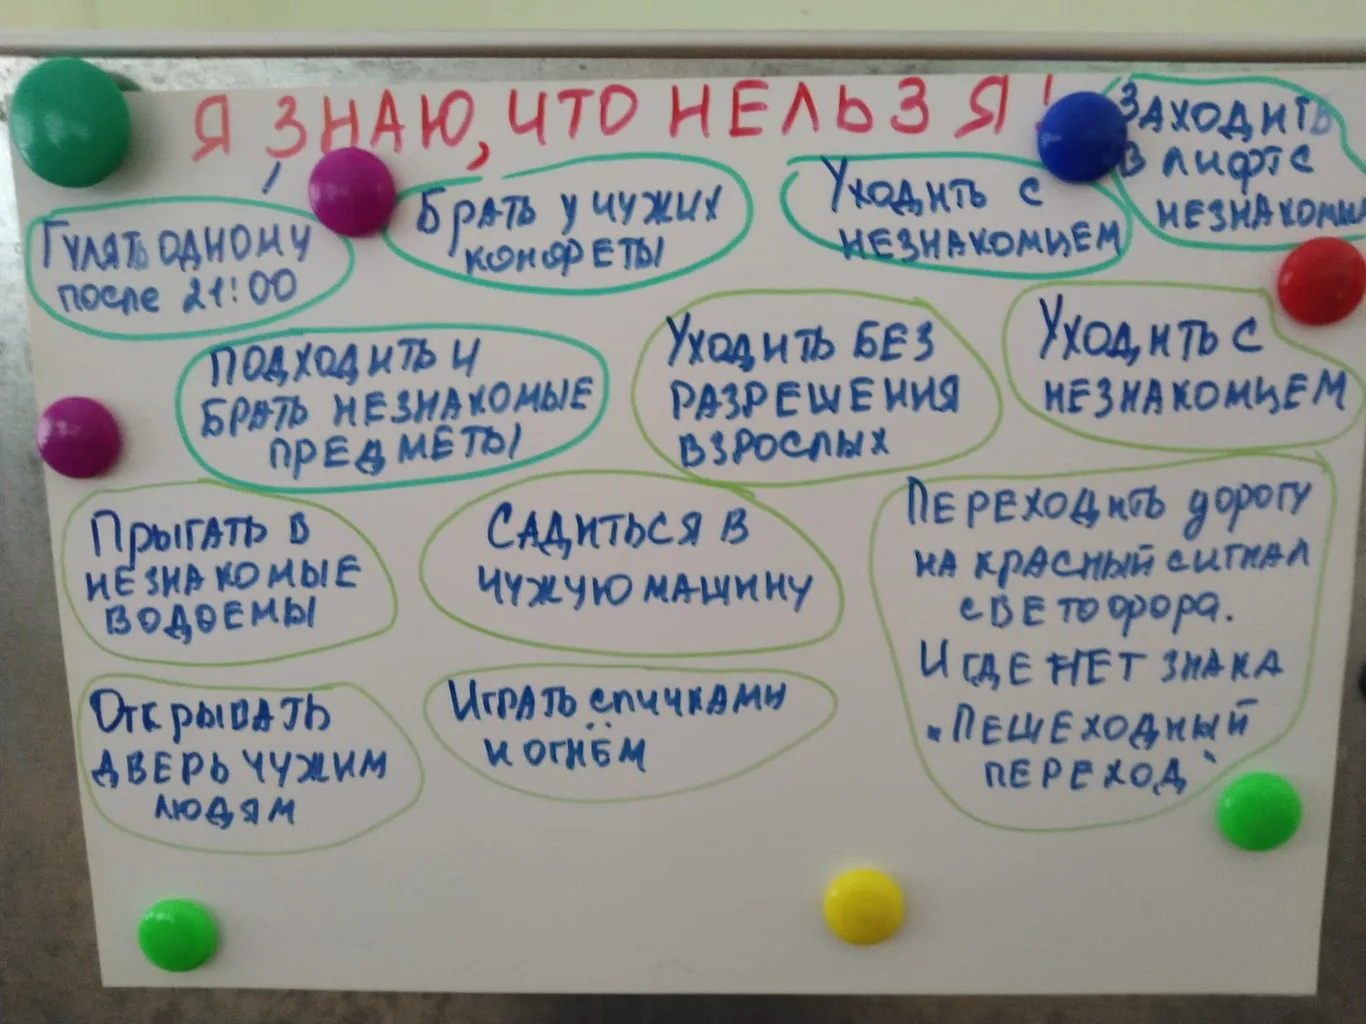 Я ЗНАЮ, ЧТО НЕЛЬЗЯ!
ГУЛЯТЬ ОДНОМУ
ПОСЛЕ 21:00
БРАТЬ У ЧУЖИХ
КОНФЕТЫ
УХОДИТЬ С
НЕЗНАКОМЦЕМ
ЗАХОДИТЬ
В ЛИФТ С
ПОДХОДИТЬ И
БРАТЬ НЕЗНАКОМЫЕ
ПРЕДМЕТЫ
УХОДИТЬ БЕЗ
РАЗРЕШЕНИЯ
ВЗРОСЛЫХ
УХОДИТЬ С
НЕЗНАКОМЦЕМ
ПРЫГАТЬ В
НЕЗНАКОМЫЕ
ВОДОЕМЫ
САДИТЬСЯ В
ЧУЖУЮ МАШИНУ
ПЕРЕХОДИТЬ ДОРОГУ
НА КРАСНЫЙ СИГНАЛ
СВЕТОФОРА.
И ГДЕ НЕТ ЗНАКА
„ПЕШЕХОДНЫЙ
ПЕРЕХОД"
ОТКРЫВАТЬ
ДВЕРЬ ЧУЖИМ
ЛЮДЯМ
ИГРАТЬ СПИЧКАМИ
И ОГНЁМ